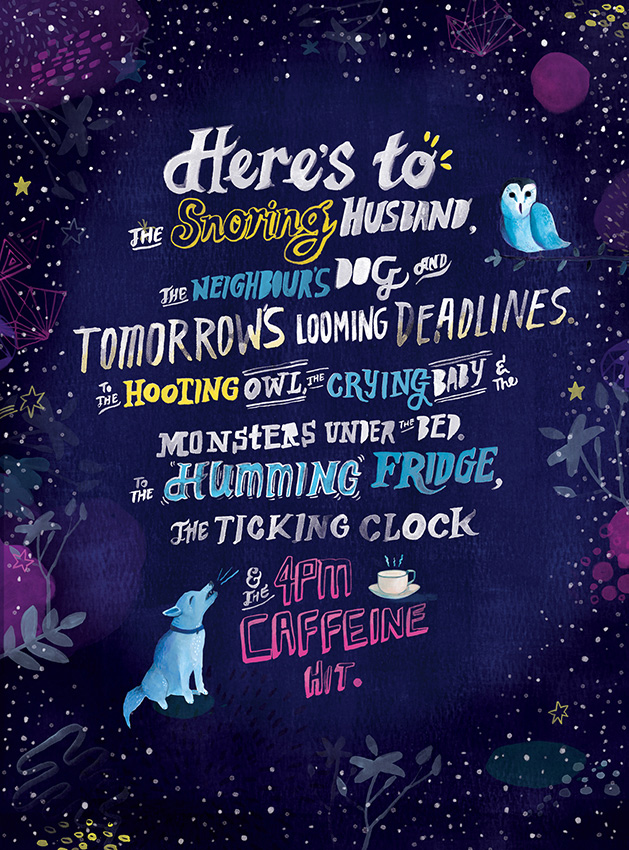 Here's to
THE Snoring HUSBAND,
THE NEIGHBOUR'S DOG AND
TOMORROW'S LOOMING DEADLINES.
TO THE HOOTING OWL, THE CRYING BABY & the
MONSTERS UNDER THE BED.
TO THE "HUMMING" FRIDGE,
THE TICKING CLOCK
& THE 4PM
CAFFEINE
HIT.